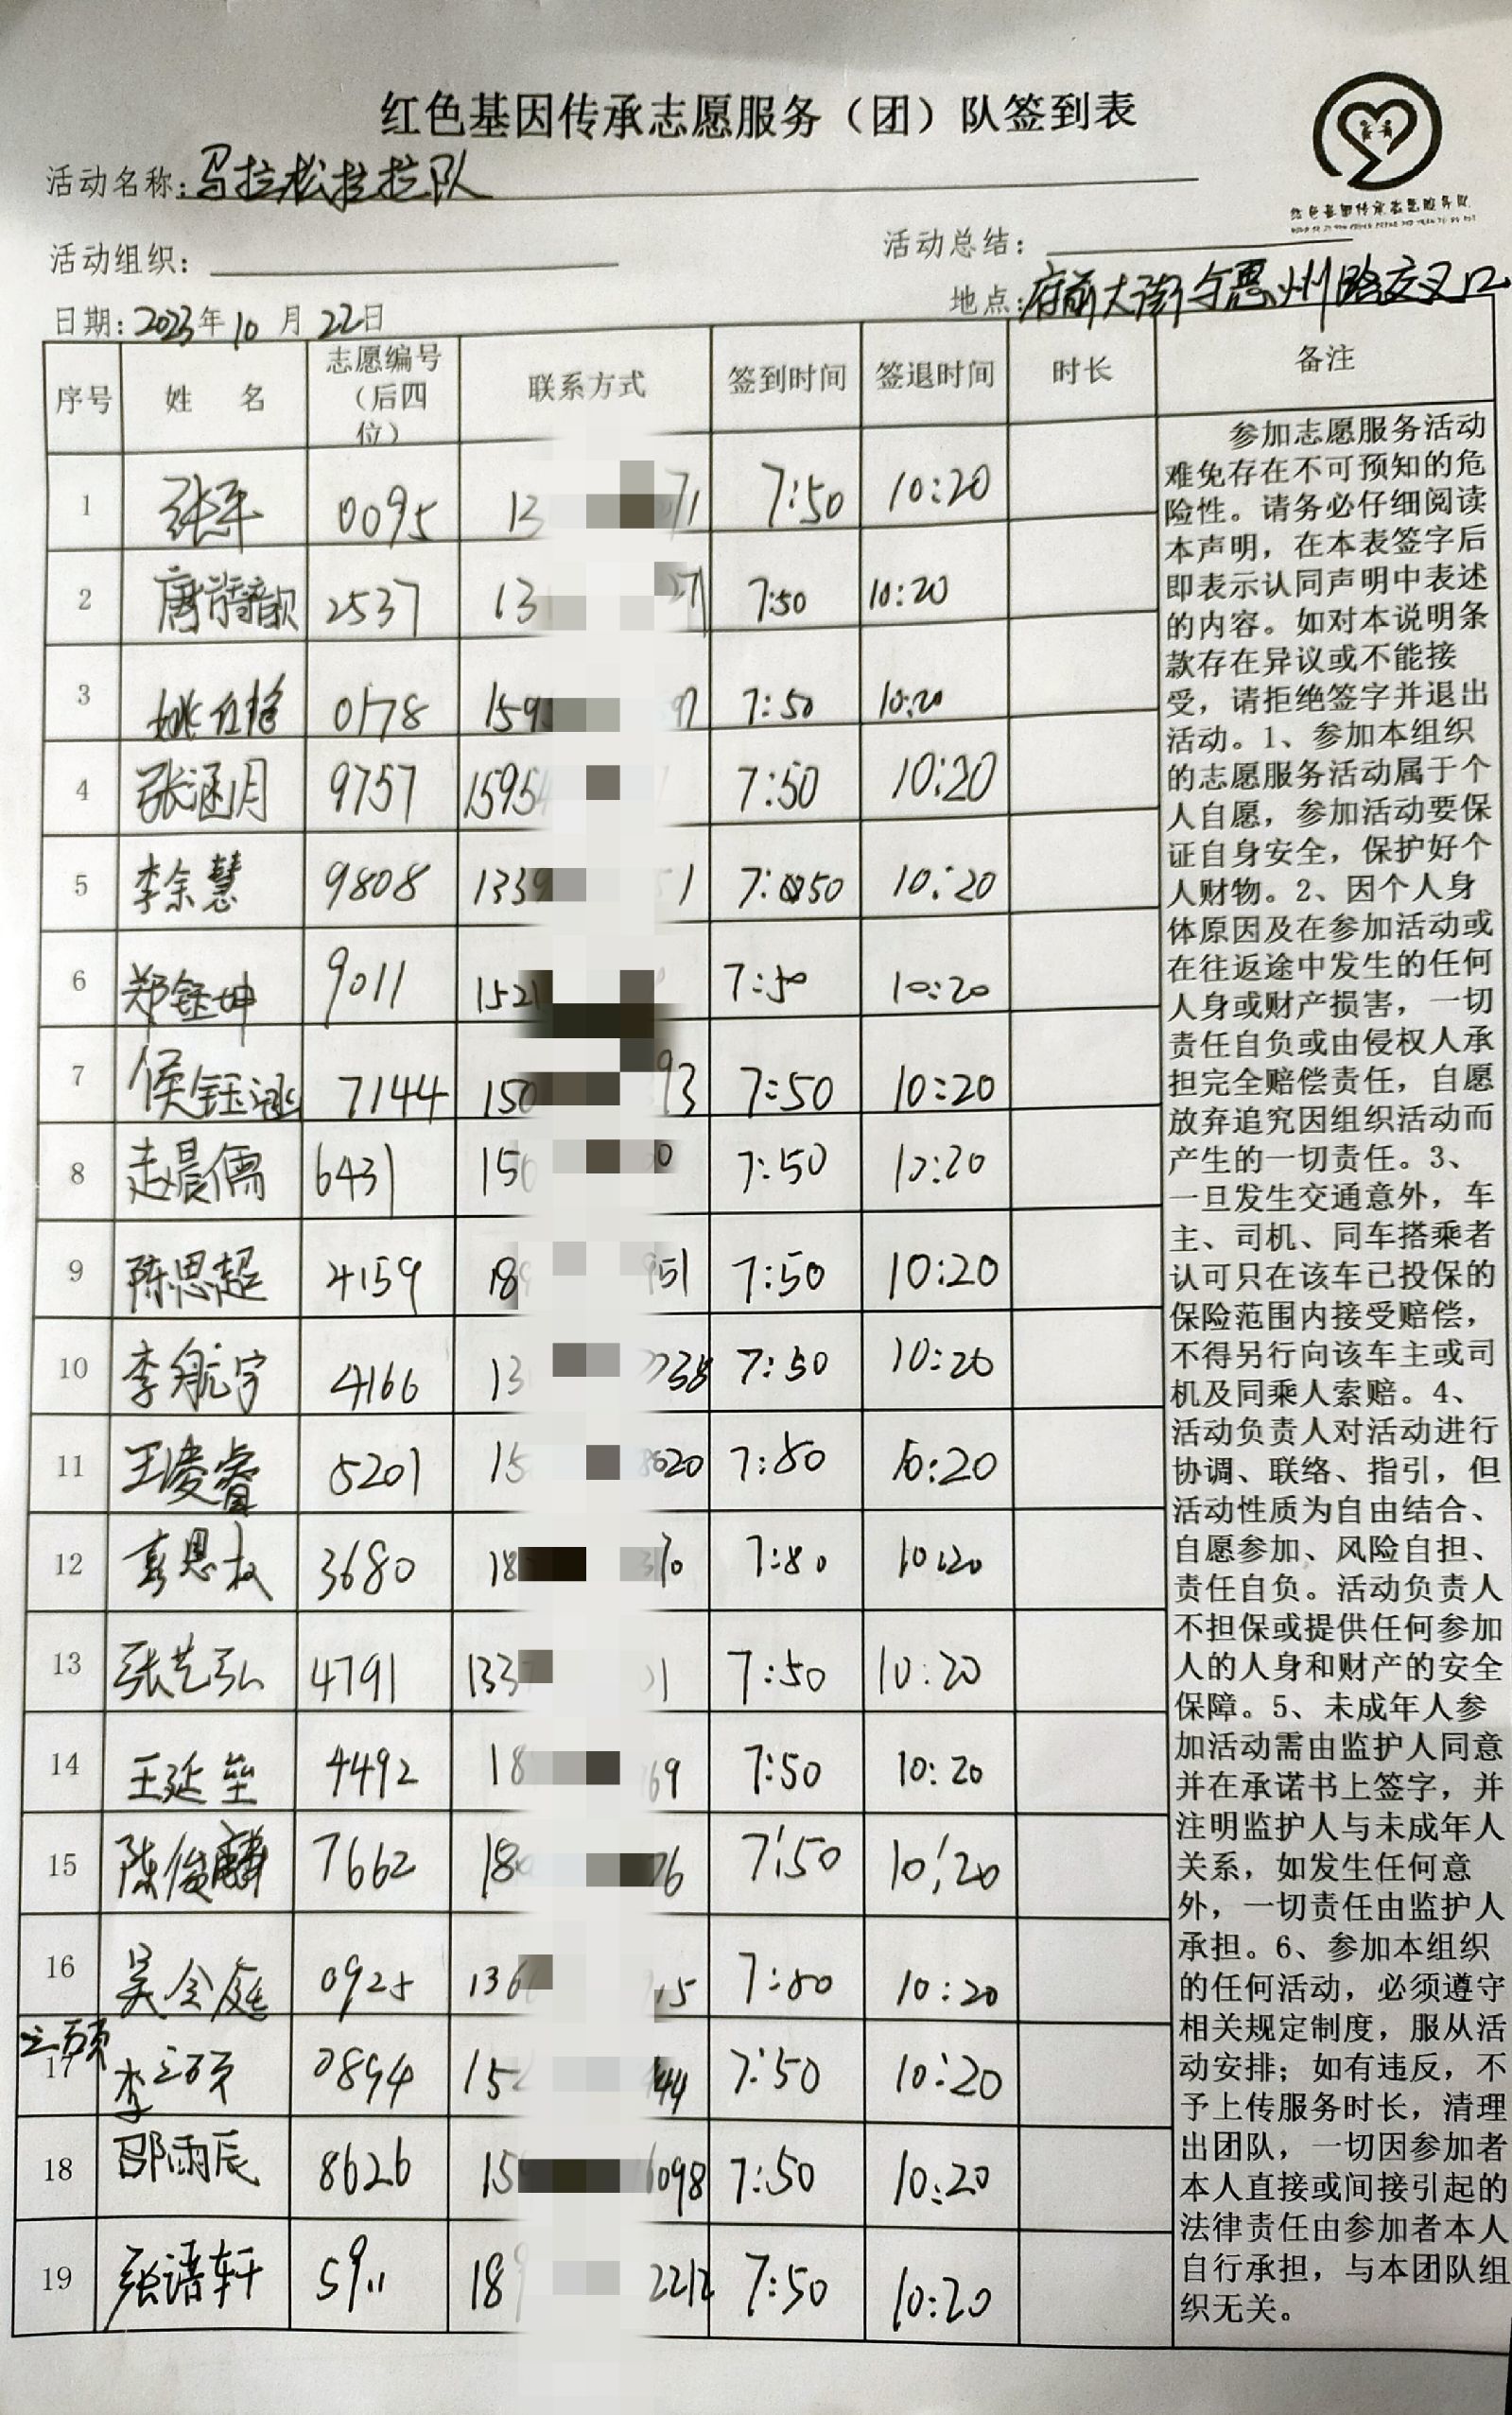 红色基因传承志愿服务（团）队签到表
活动名称：马拉松拉拉队
活动组织：
活动总结：
日期：2023年10月22日
地点：府前大街与惠州路交叉口
序号 姓 名 志愿编号（后四位） 联系方式 签到时间 签退时间 时长 备注
1 张平 0095 13 71 7:50 10:20
2 唐 2537 13 27 7:50 10:20
3 姚红 0178 159 97 7:50 10:20
4 张涵月 9757 1595 7:50 10:20
5 李余慧 9808 1339 51 7:50 10:20
6 郑钰坤 9011 1521 7:50 10:20
7 侯钰涵 7144 150 93 7:50 10:20
8 赵晨儒 6431 150 0 7:50 10:20
9 陈思超 4159 18 951 7:50 10:20
10 李航宇 4166 13 738 7:50 10:20
11 王凌睿 5201 15 8620 7:50 10:20
12 恩 3680 18 370 7:50 10:20
13 张艺弘 4791 133 1 7:50 10:20
14 王延垒 4492 18 69 7:50 10:20
15 陈俊麟 7662 180 76 7:50 10:20
16 吴金庭 0925 136 15 7:50 10:20
17 李之硕 0894 15 44 7:50 10:20
18 邵雨辰 8626 15 6098 7:50 10:20
19 张谱轩 5911 18 2212 7:50 10:20
参加志愿服务活动
难免存在不可预知的危
险性。请务必仔细阅读
本声明，在本表签字后
即表示认同声明中表述
的内容。如对本说明条
款存在异议或不能接
受，请拒绝签字并退出
活动。1、参加本组织
的志愿服务活动属于个
人自愿，参加活动要保
证自身安全，保护好个
人财物。2、因个人身
体原因及在参加活动或
在往返途中发生的任何
人身或财产损害，一切
责任自负或由侵权人承
担完全赔偿责任，自愿
放弃追究因组织活动而
产生的一切责任。3、
一旦发生交通意外，车
主、司机、同车搭乘者
认可只在该车已投保的
保险范围内接受赔偿，
不得另行向该车主或司
机及同乘人索赔。4、
活动负责人对活动进行
协调、联络、指引，但
活动性质为自由结合、
自愿参加、风险自担、
责任自负。活动负责人
不担保或提供任何参加
人的人身和财产的安全
保障。5、未成年人参
加活动需由监护人同意
并在承诺书上签字，并
注明监护人与未成年人
关系，如发生任何意
外，一切责任由监护人
承担。6、参加本组织
的任何活动，必须遵守
相关规定制度，服从活
动安排；如有违反，不
予上传服务时长，清理
出团队，一切因参加者
本人直接或间接引起的
法律责任由参加者本人
自行承担，与本团队组
织无关。